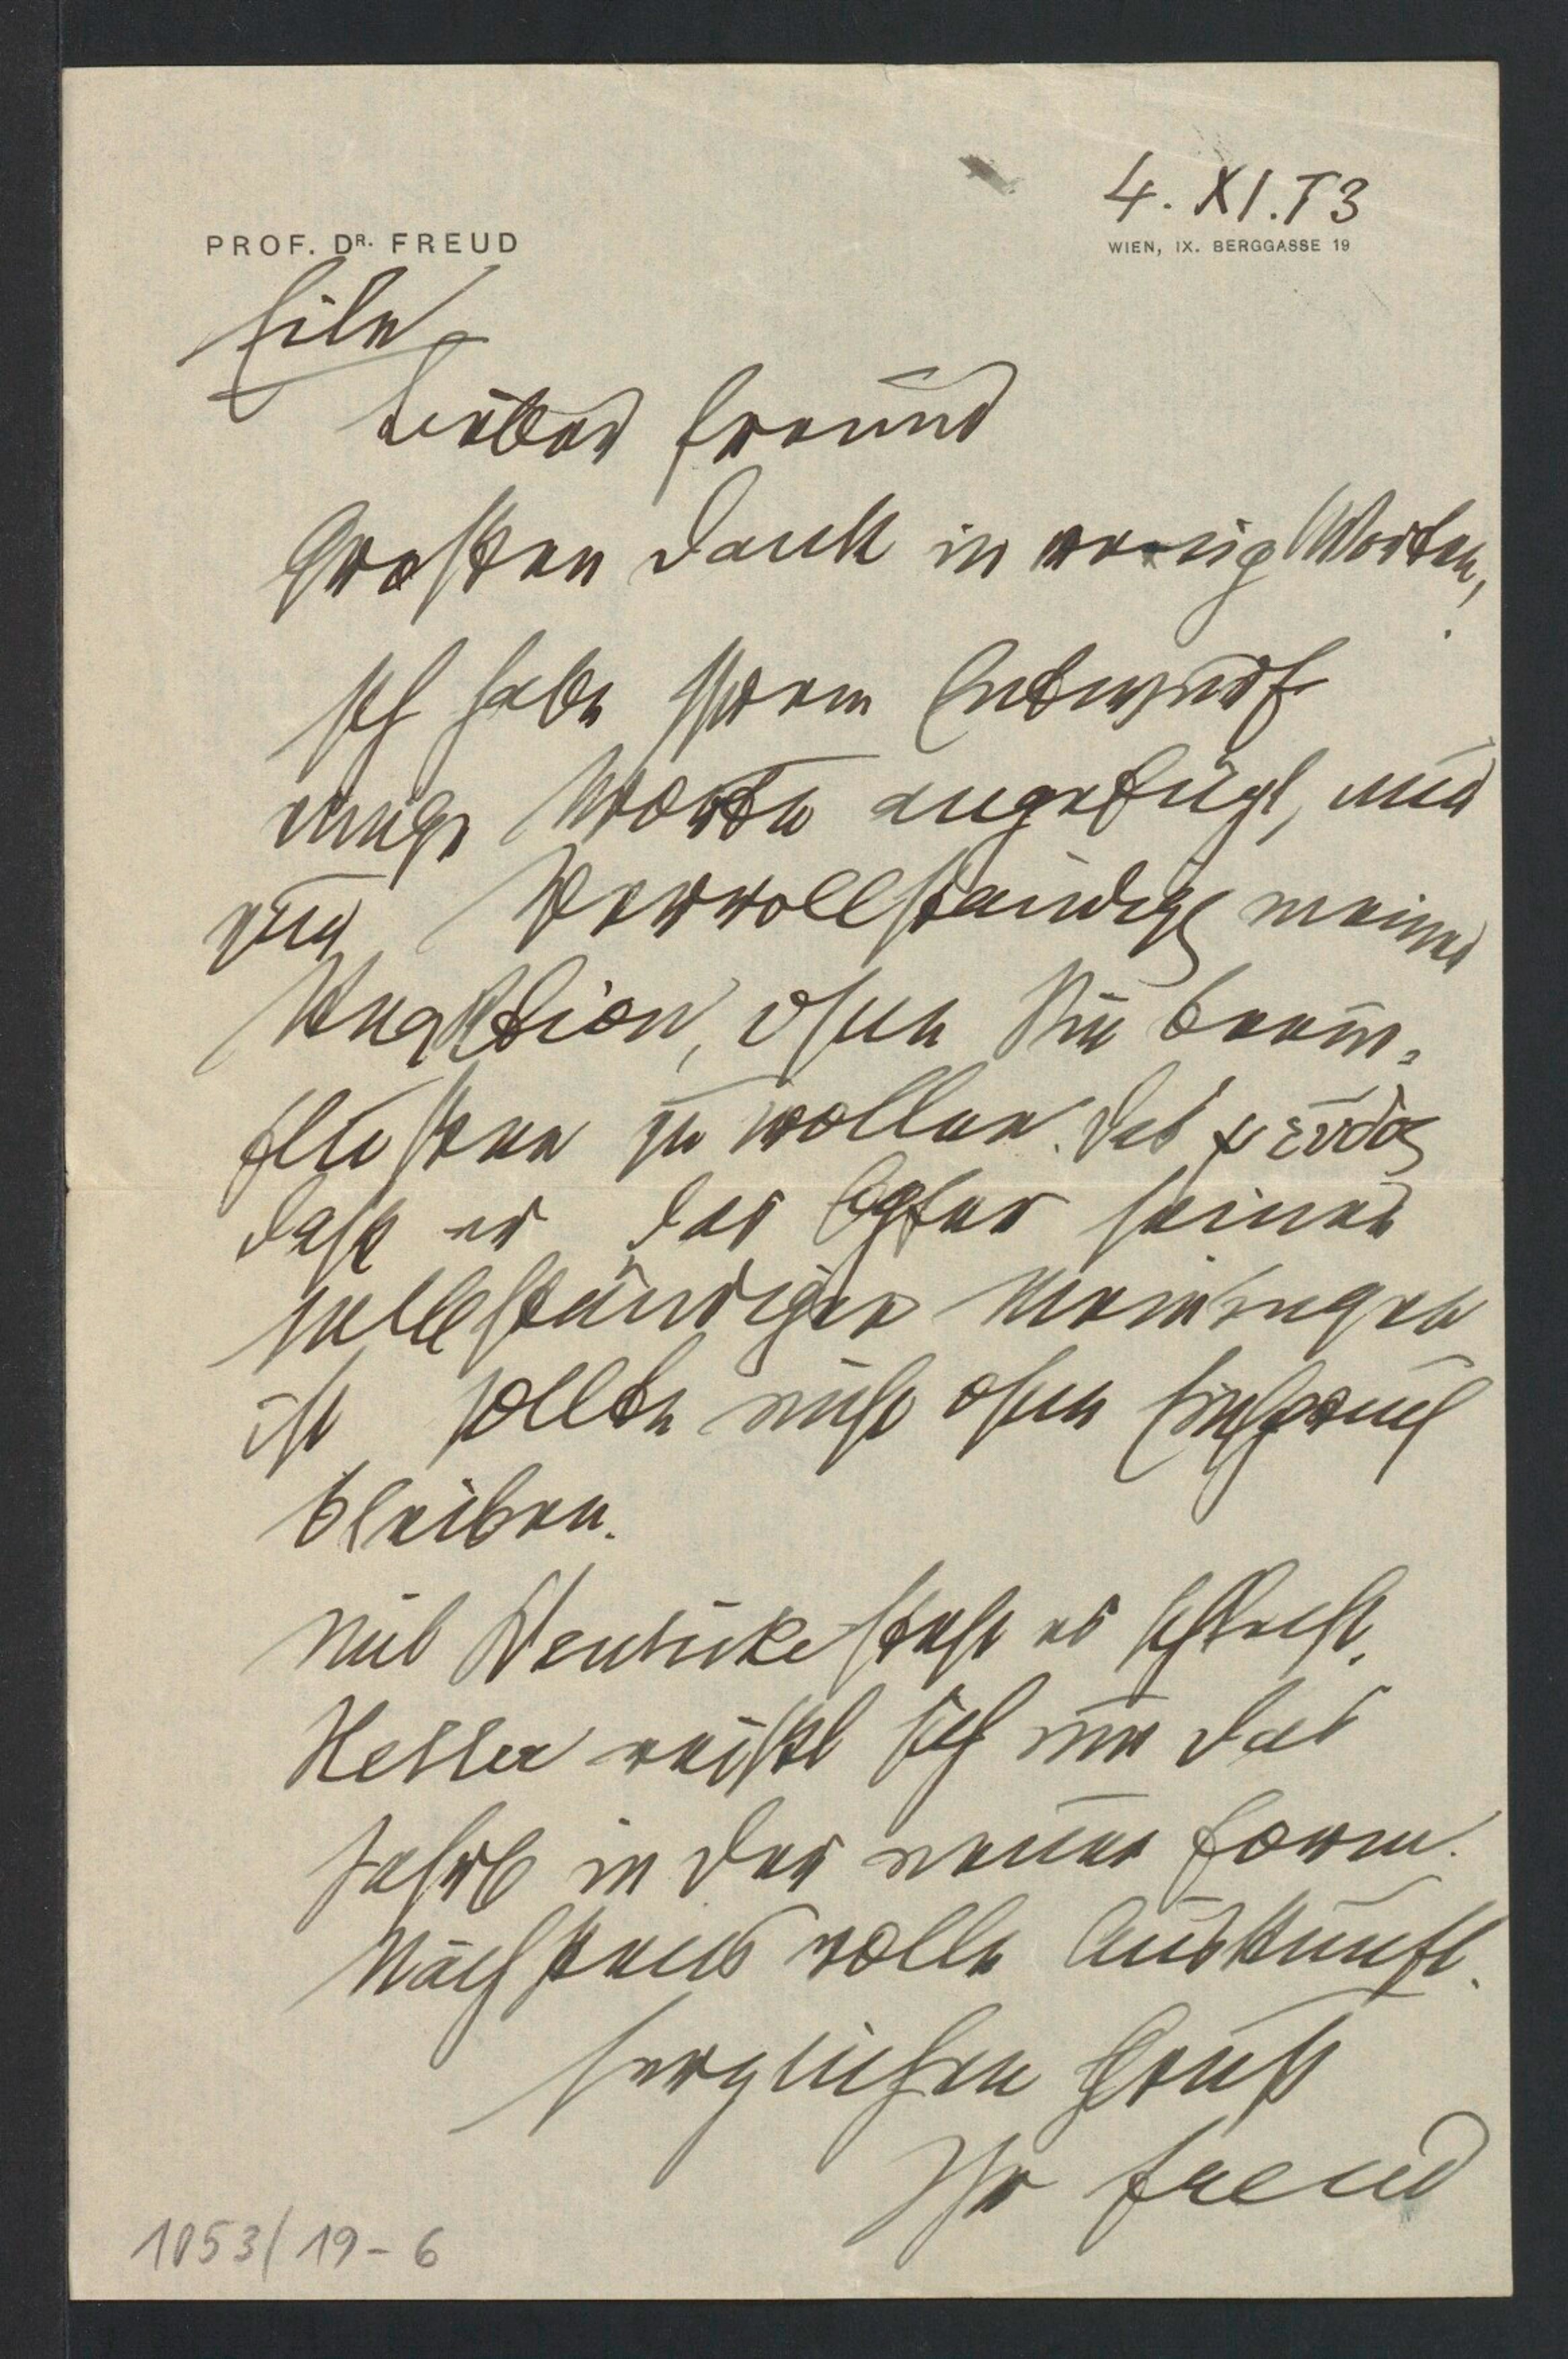 4. XI. 13
PROF. DR. FREUD
WIEN, IX. BERGGASSE 19
Eile
Lieber Freund
Großen Dank in wenig Worten,
Ich habe Ihrem Entwurf
einige Worte angefügt, nur
zur Vervollständigg meiner
Reaktion, ohne Sie beein-
flussen zu wollen. Das ψεῦδος
daß er das Opfer seiner
selbständigen Meinungen
ist sollte nicht ohne Einspruch
bleiben.
Mit Deuticke steht es schlecht.
Heller reißt sich um das
Jahrb in der neuen Form.
Nächstens volle Auskunft.
Herzlichen Gruß
Ihr Freud
1053/19-6